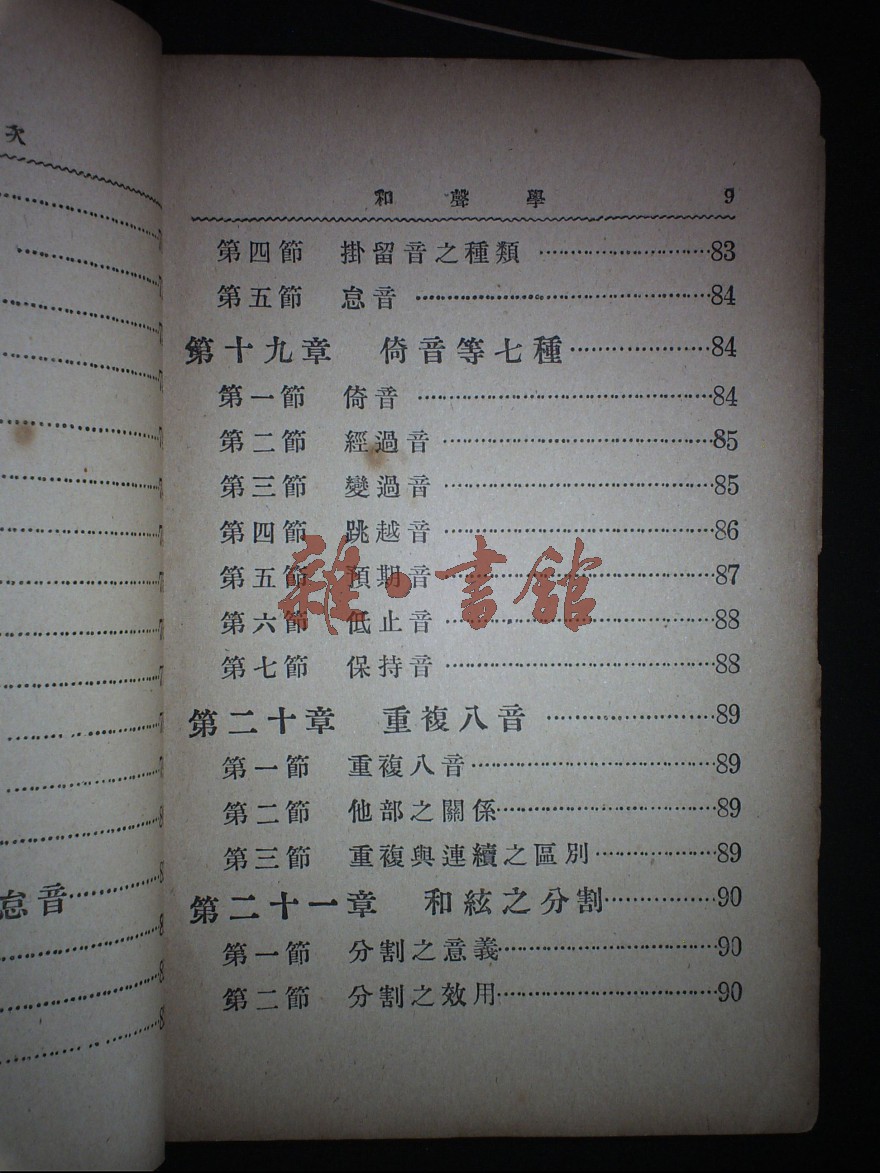 次
和聲學 9
第四節 掛留音之種類 ……………83
第五節 怠音 ……………84
第十九章 倚音等七種……………84
第一節 倚音 ……………84
第二節 經過音 ……………85
第三節 變過音 ……………85
第四節 跳越音 ……………86
第五節 預期音 ……………87
第六節 低止音 ……………88
第七節 保持音 ……………88
第二十章 重複八音 ……………89
第一節 重複八音……………89
第二節 他部之關係……………89
第三節 重複與連續之區別……………89
第二十一章 和絃之分割……………90
第一節 分割之意義……………90
第二節 分割之效用……………90
怠音
雜·書館